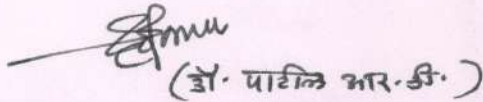 (डॉ. पाटील आर.डी.)